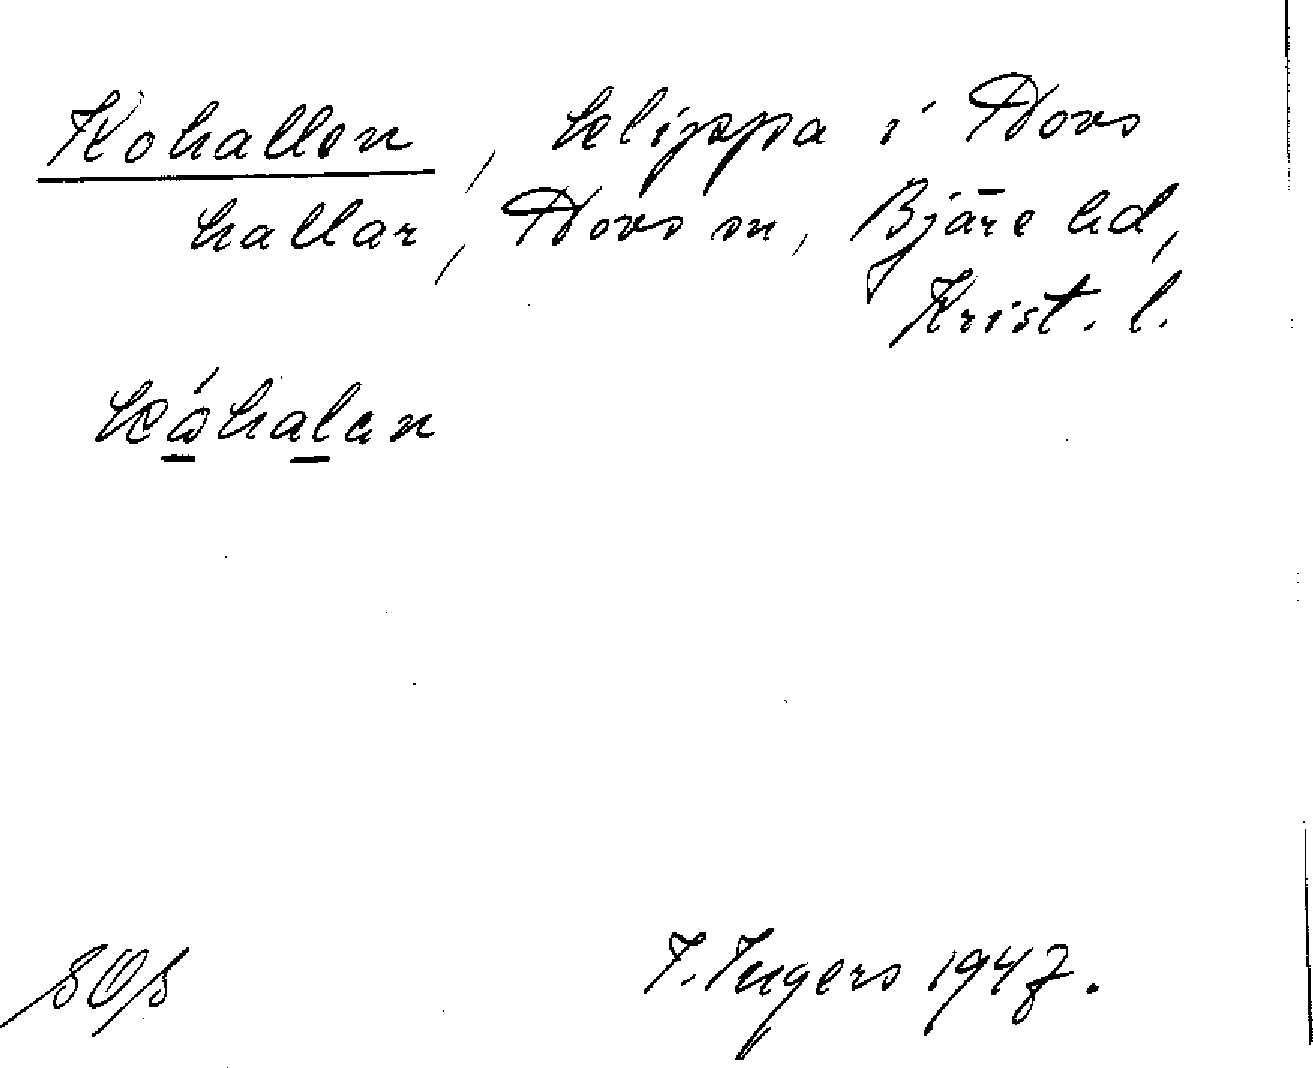 Kohallen, klippa i Hovs
hallar, Hovs sn, Bjäre hd,
Krist. l.
kóhalan
SOS
I. Ingers 1947.